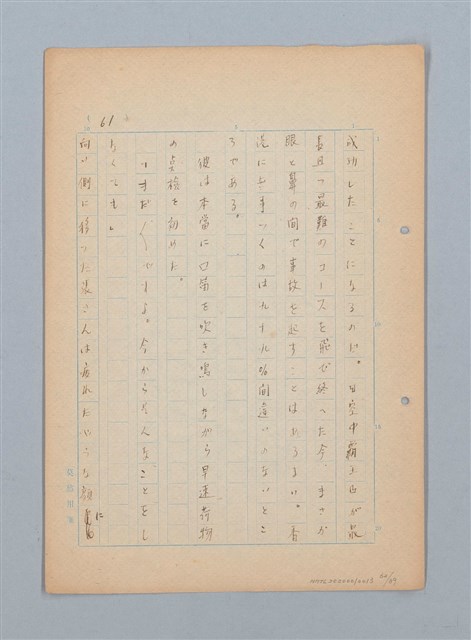 61
成功したことになるのだ。日空中覇主日が最
長且つ最難のコースを飛び終つた今、まさか
眼と鼻の間で事故を起すことはあるまい。香
港に止まつくのは九十九%間違ひのないとこ
ろである。
彼は本當に口笛を吹き鳴しながら早速荷物
の点検を初めた。
「まだ／＼ですよ。今からそんなことをし
なくても」
向ひ側に移つた張さん人は疲れたやうな顔に
原稿用箋